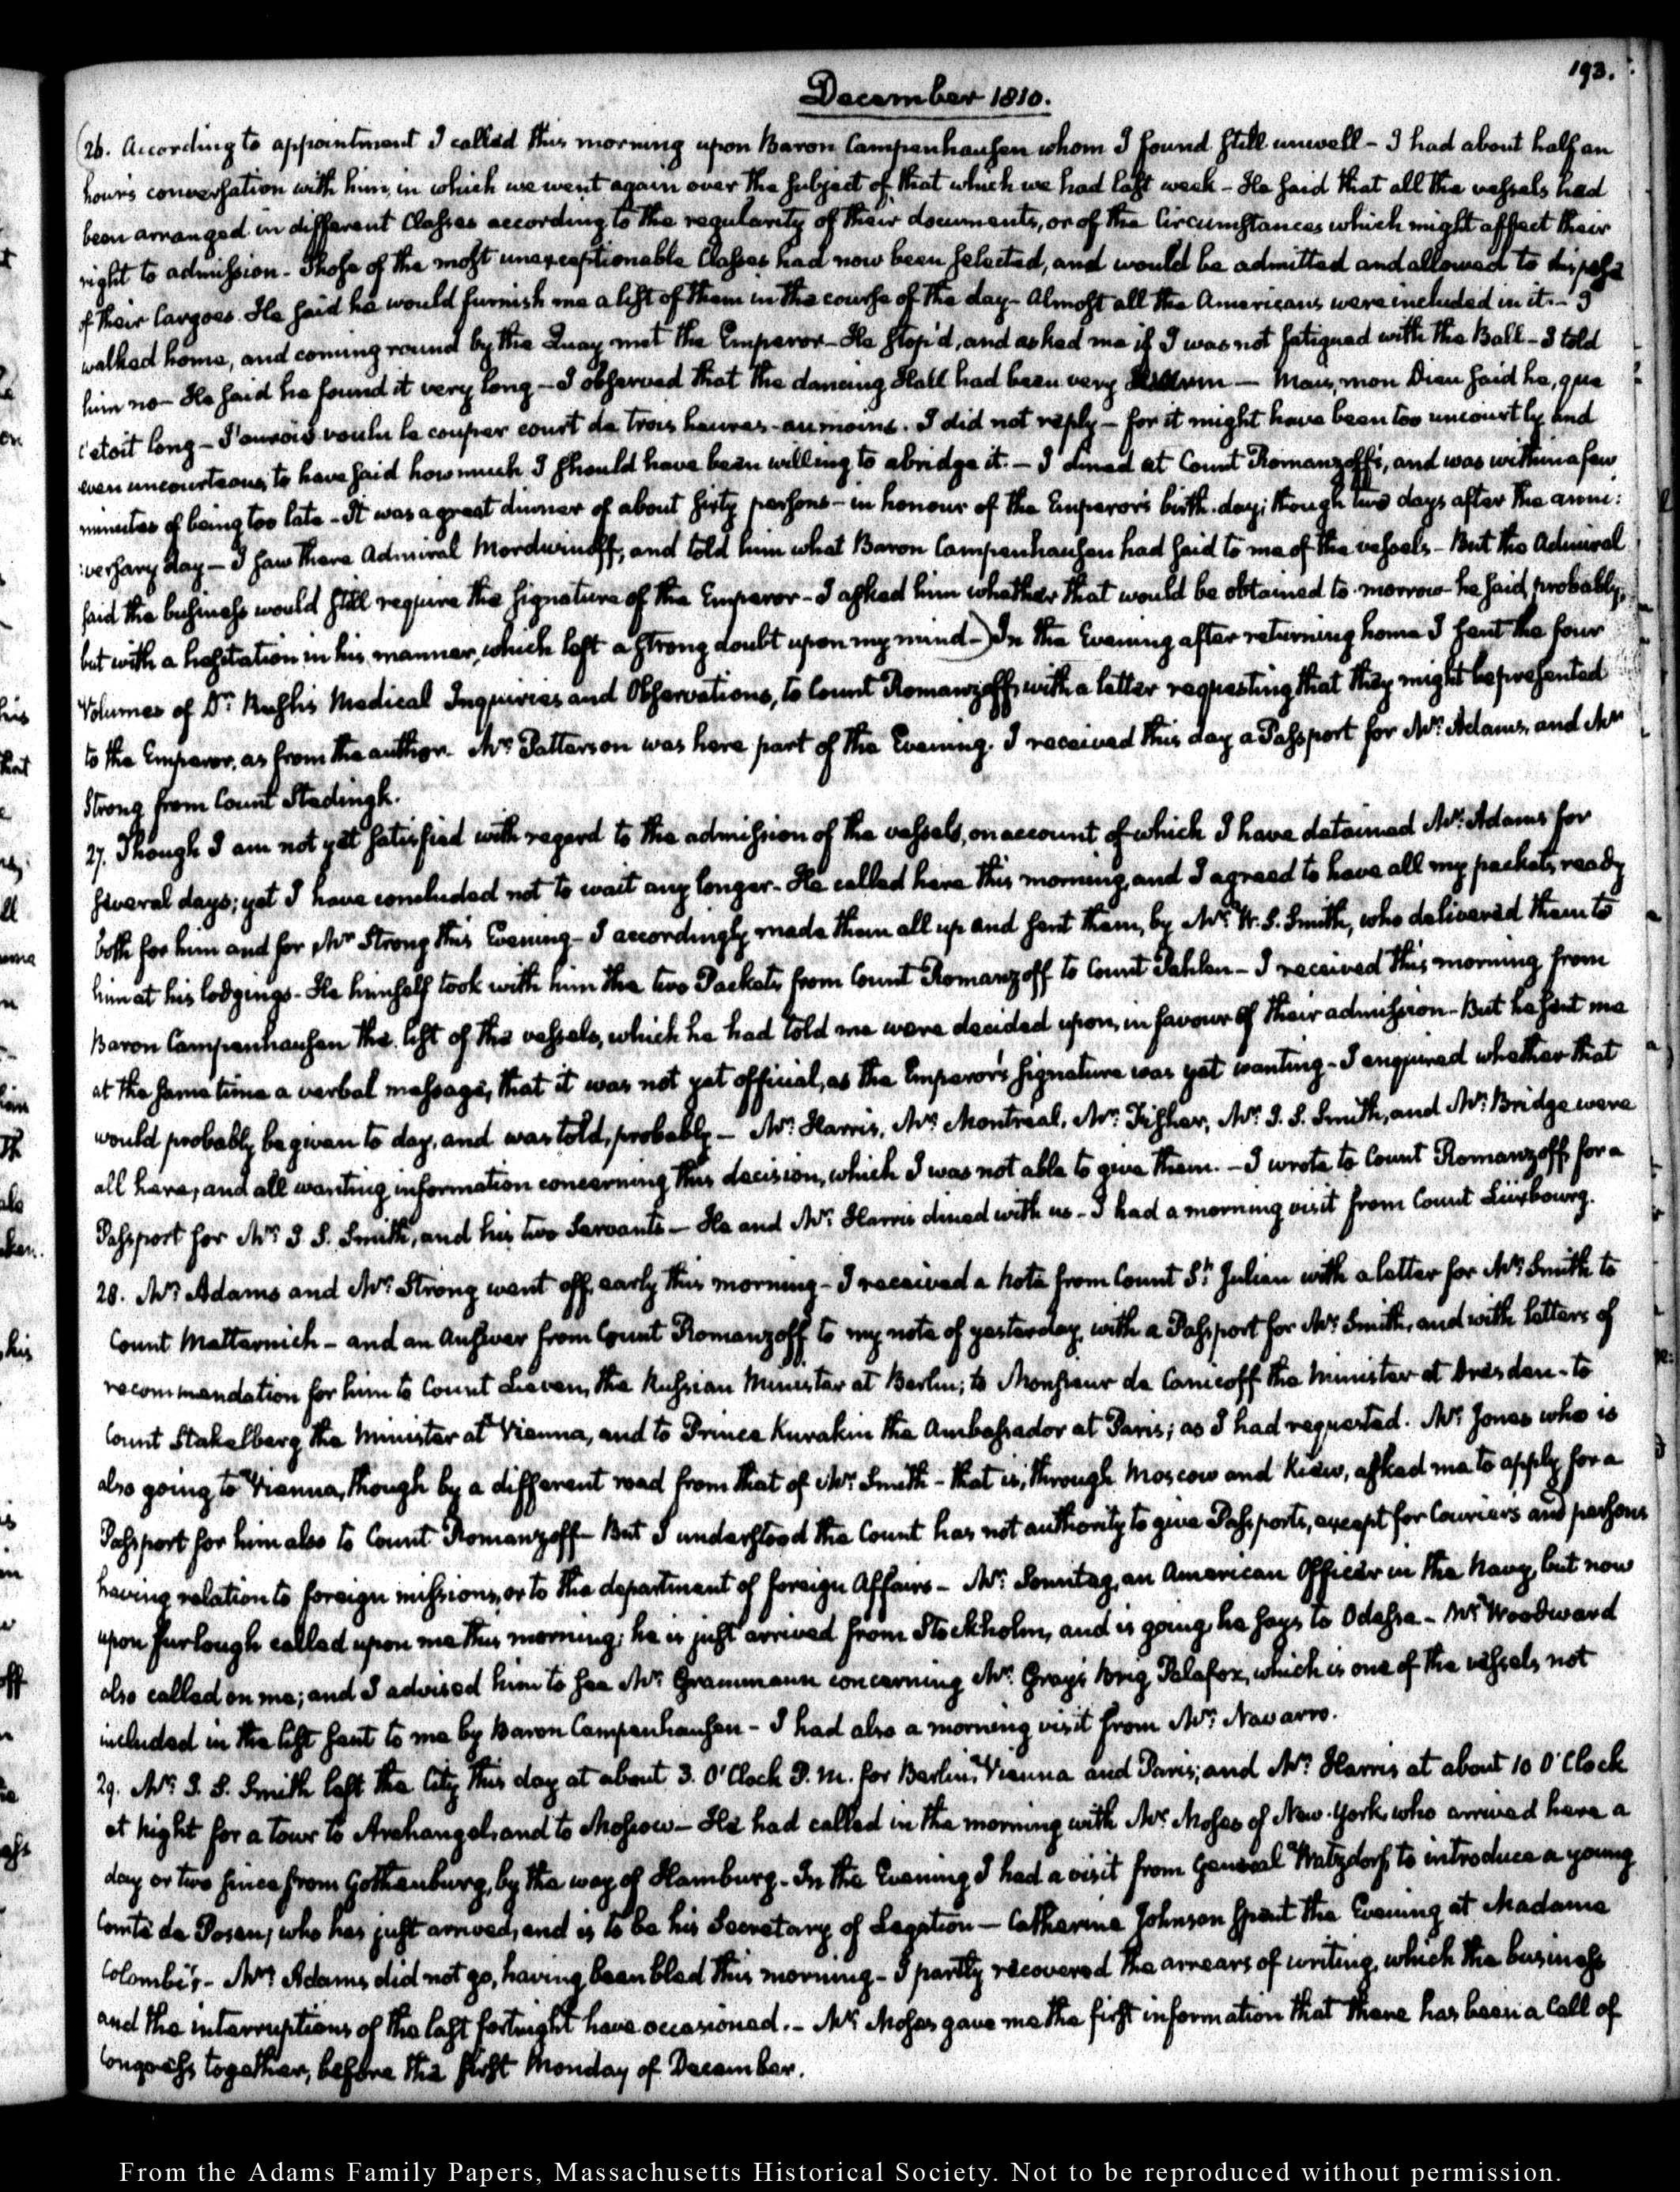 193.
December 1810.
(26. According to appointment I called this morning upon Baron Campenhausen whom I found still unwell - I had about half an
hour's conversation with him, in which we went again over the subject of that which we had last week - He said that all the vessels had
been arranged in different Classes according to the regularity of their documents, or of the Circumstances which might affect their
right to admission - Those of the most unexceptionable Classes had now been selected, and would be admitted and allowed to dispose
of their Cargoes. He said he would furnish me a list of them in the course of the day - Almost all the Americans were included in it. - I
walked home, and coming round by the Quay met the Emperor - He stop'd, and asked me if I was not fatigued with the Ball - I told
him no - He said he found it very long - I observed that the dancing Hall had been very - Mais, mon Dieu said he, que
c'etoit long - J'aurois voulu le couper court de trois heures - au moins. I did not reply - for it might have been too uncourtly and
even uncourteous, to have said how much I should have been willing to abridge it. - I dined at Count Romanzoff's, and was within a few
minutes of being too late - It was a great dinner of about sixty persons - in honour of the Emperor's birth-day; though two days after the anni:
:versary day - I saw there Admiral Mordwinoff, and told him what Baron Campenhausen had said to me of the vessels - But the Admiral
said the business would still require the signature of the Emperor - I asked him whether that would be obtained to-morrow - he said, probably,
but with a hesitation in his manner, which left a strong doubt upon my mind -) In the Evening after returning home I sent the four
Volumes of Dr. Rush's Medical Inquiries and Observations, to Count Romanzoff, with a letter requesting that they might be presented
to the Emperor, as from the author. Mr. Patterson was here part of the Evening. I received this day a Passport for Mr. Adams, and Mr.
Strong from Count Stedingk.
27. Though I am not yet satisfied with regard to the admission of the vessels, on account of which I have detained Mr. Adams for
several days; yet I have concluded not to wait any longer - He called here this morning, and I agreed to have all my packets ready
both for him and for Mr Strong this Evening - I accordingly made them all up and sent them, by Mr. W. S. Smith, who delivered them to
him at his lodgings - He himself took with him the two Packets from Count Romanzoff to Count Pahlen - I received this morning from
Baron Campenhausen the list of the vessels, which he had told me were decided upon, in favour of their admission - But he sent me
at the same time a verbal message, that it was not yet official, as the Emperor's signature was yet wanting - I enquired whether that
would probably be given to day, and was told, probably - Mr. Harris, Mr. Montreal, Mr. Fisher, Mr. J. S. Smith, and Mr. Bridge were
all here, and all wanting information concerning this decision, which I was not able to give them. - I wrote to Count Romanzoff, for a
Passport for Mr. J. S. Smith, and his two Servants - He and Mr. Harris dined with us - I had a morning visit from Count Luxbourg.
28. Mr. Adams and Mr. Strong went off, early this morning - I received a note from Count St. Julien with a letter for Mr. Smith to
Count Metternich - and an Answer from Count Romanzoff to my note of yesterday, with a Passport for Mr. Smith, and with letters of
recommendation for him to Count Lieven, the Russian Minister at Berlin; to Monsieur de Canicoff the Minister at Dresden - to
Count Stakelberg the Minister at Vienna, and to Prince Kurakin the Ambassador at Paris; as I had requested. Mr. Jones who is
also going to Vienna, though by a different road from that of Mr. Smith - that is, through Moscow and Kiew, asked me to apply for a
Passport for him also to Count Romanzoff - But I understood the Count has not authority to give Passports, except for Couriers and persons
having relation to foreign missions, or to the department of foreign Affairs - Mr. Sonntag, an American Officer in the Navy, but now
upon furlough called upon me this morning; he is just arrived from Stockholm, and is going, he says to Odessa - Mr. Woodward
also called on me; and I advised him to see Mr. Grammann concerning Mr. Gray's brig Palafox, which is one of the vessels not
included in the list sent to me by Baron Campenhausen - I had also a morning visit from Mr. Navarro.
29. Mr. J. S. Smith left the City this day at about 3. O'Clock P.M. for Berlin, Vienna and Paris; and Mr. Harris at about 10 O'Clock
at night for a tour to Archangel, and to Moscow - He had called in the morning with Mr. Moses of New-York, who arrived here a
day or two since from Gothenburg, by the way of Hamburg - In the Evening I had a visit from General Watzdorf to introduce a young
Comte de Posen, who has just arrived, and is to be his Secretary of Legation - Catherine Johnson spent the Evening at Madame
Colombi's - Mrs. Adams did not go, having been bled this morning - I partly recovered the arrears of writing, which the business
and the interruptions of the last fortnight have occasioned. - Mr. Moses gave me the first information that there has been a Call of
Congress together, before the first Monday of December.
From the Adams Family Papers, Massachusetts Historical Society. Not to be reproduced without permission.